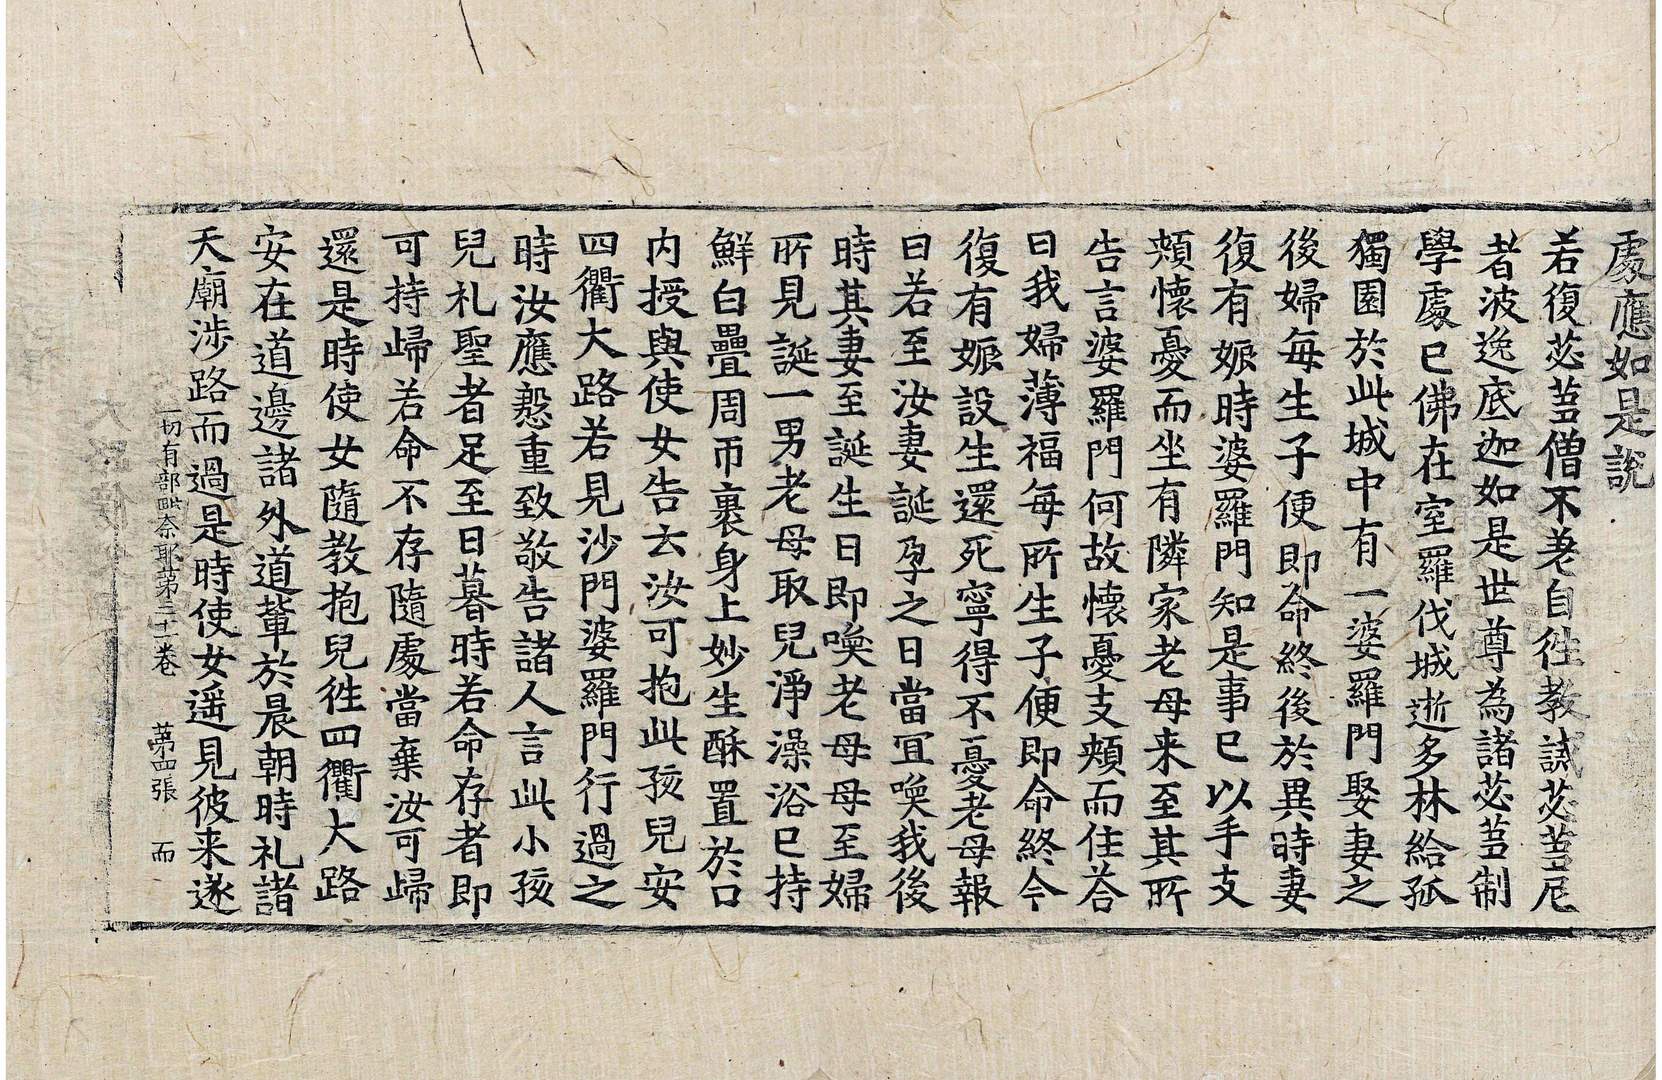 處應如是說
若復苾蒭僧不差自徃教誡苾蒭尼
者波逸底迦如是世尊為諸苾蒭制
學處已佛在室羅伐城逝多林給孤
獨園於此城中有一婆羅門娶妻之
後婦每生子便即命終後於異時妻
復有娠時婆羅門知是事已以手支
頰懷憂而坐有隣家老母来至其所
告言婆羅門何故懷憂支頰而住荅
曰我婦薄福每所生子便即命終今
復有娠設生還死寧得不憂老母報
曰若至汝妻誕孕之日當冝喚我後
時其妻至誕生日即喚老母母至婦
所見誕一男老母取兒淨澡浴已持
鮮白疊周帀裹身上妙生酥置於口
内授與使女告云汝可抱此孩兒安
四衢大路若見沙門婆羅門行過之
時汝應慇重致敬告諸人言此小孩
兒礼聖者足至日暮時若命存者即
可持歸若命不存隨處當棄汝可歸
還是時使女隨教抱兒徃四衢大路
安在道邊諸外道輩於晨朝時礼諸
天廟涉路而過是時使女遥見彼来遂
一切有部毗奈耶苐三十一卷 苐四張 而